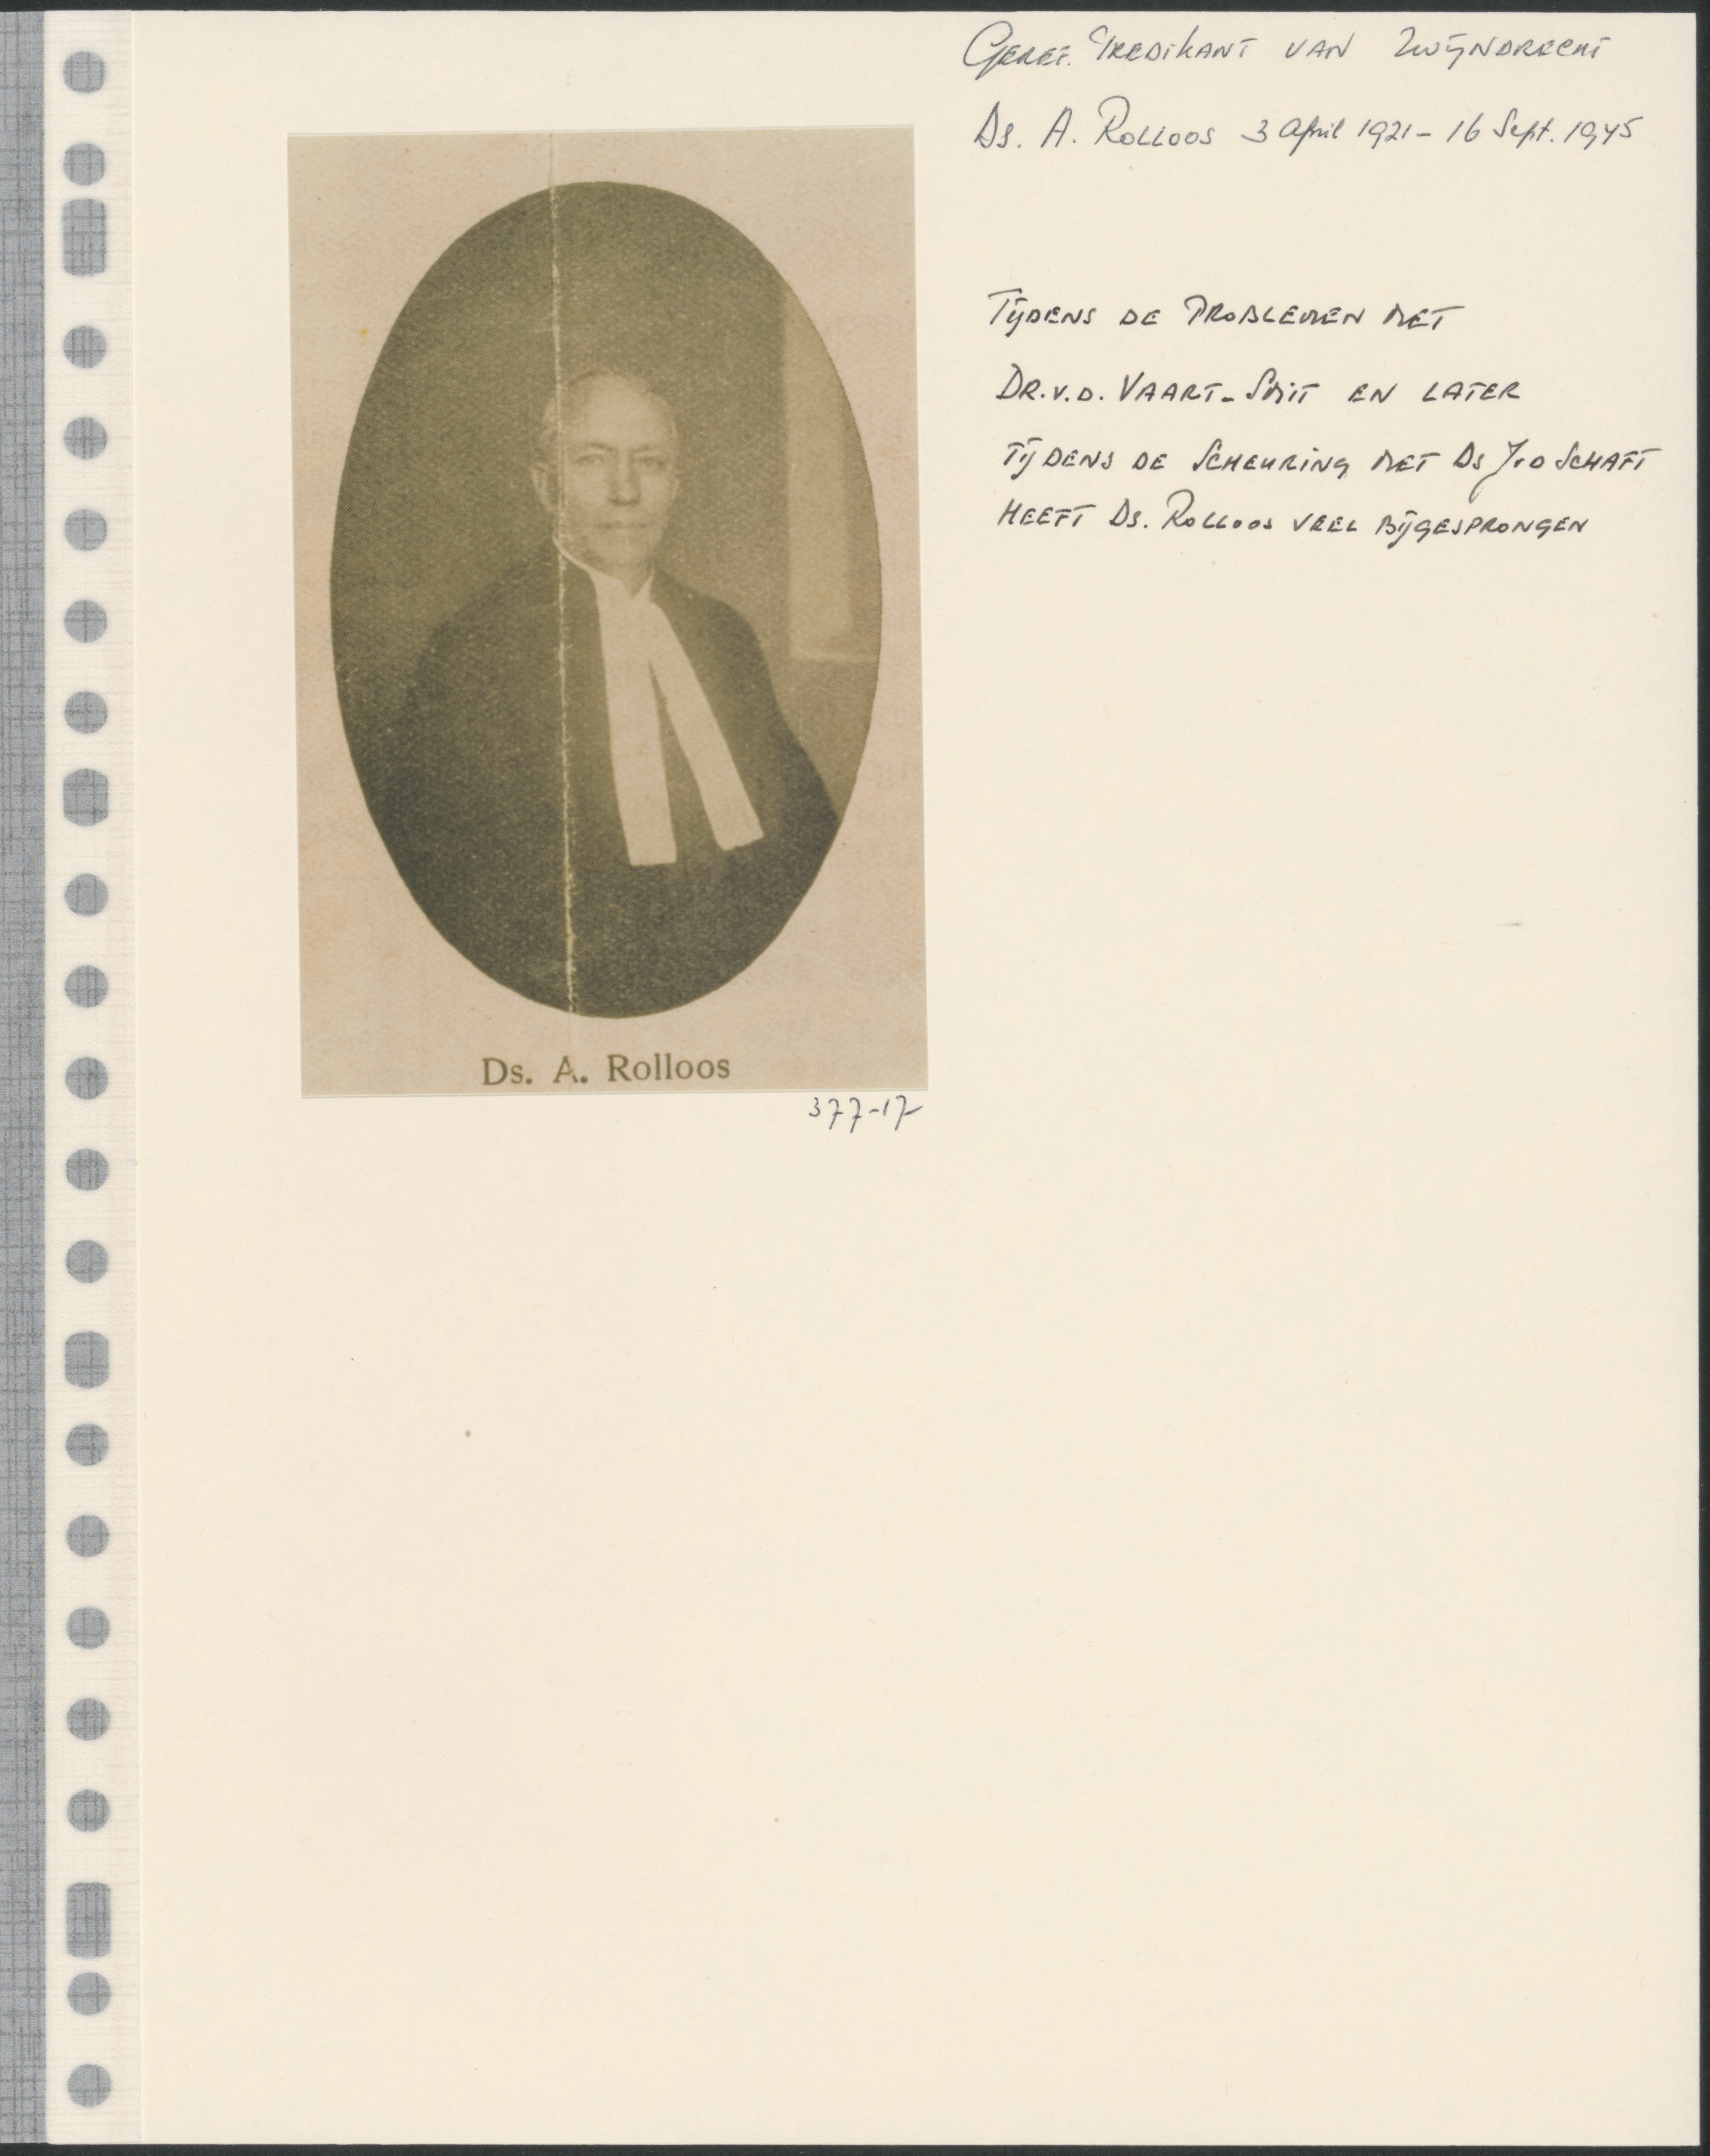 Geref. Predikant van Zwijndrecht
Ds. A. Rolloos 3 april 1921 - 16 Sept. 1945
Tijdens de Problemen met
Dr. v.d. Vaart-Smit en later
Tijdens de Scheuring met Ds J v.d Schaft
heeft Ds. Rolloos veel bijgesprongen
Ds. A. Rolloos
377-17